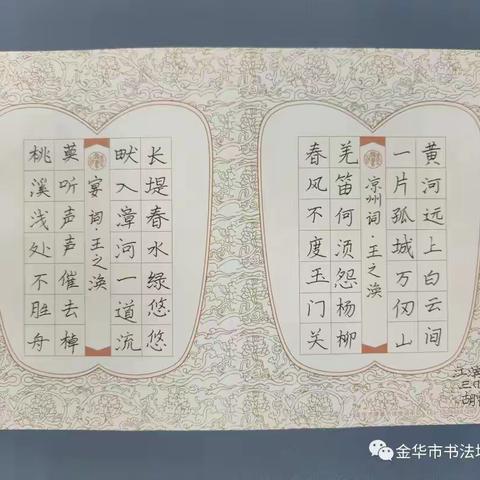 黄河远上白云间
一片孤城万仞山
凉州词·王之涣
羌笛何须怨杨柳
春风不度玉门关
长堤春水绿悠悠
畎入漳河一道流
宴词·王之涣
莫听声声催去棹
桃溪浅处不胜舟
江滨
三
胡
金华市书法